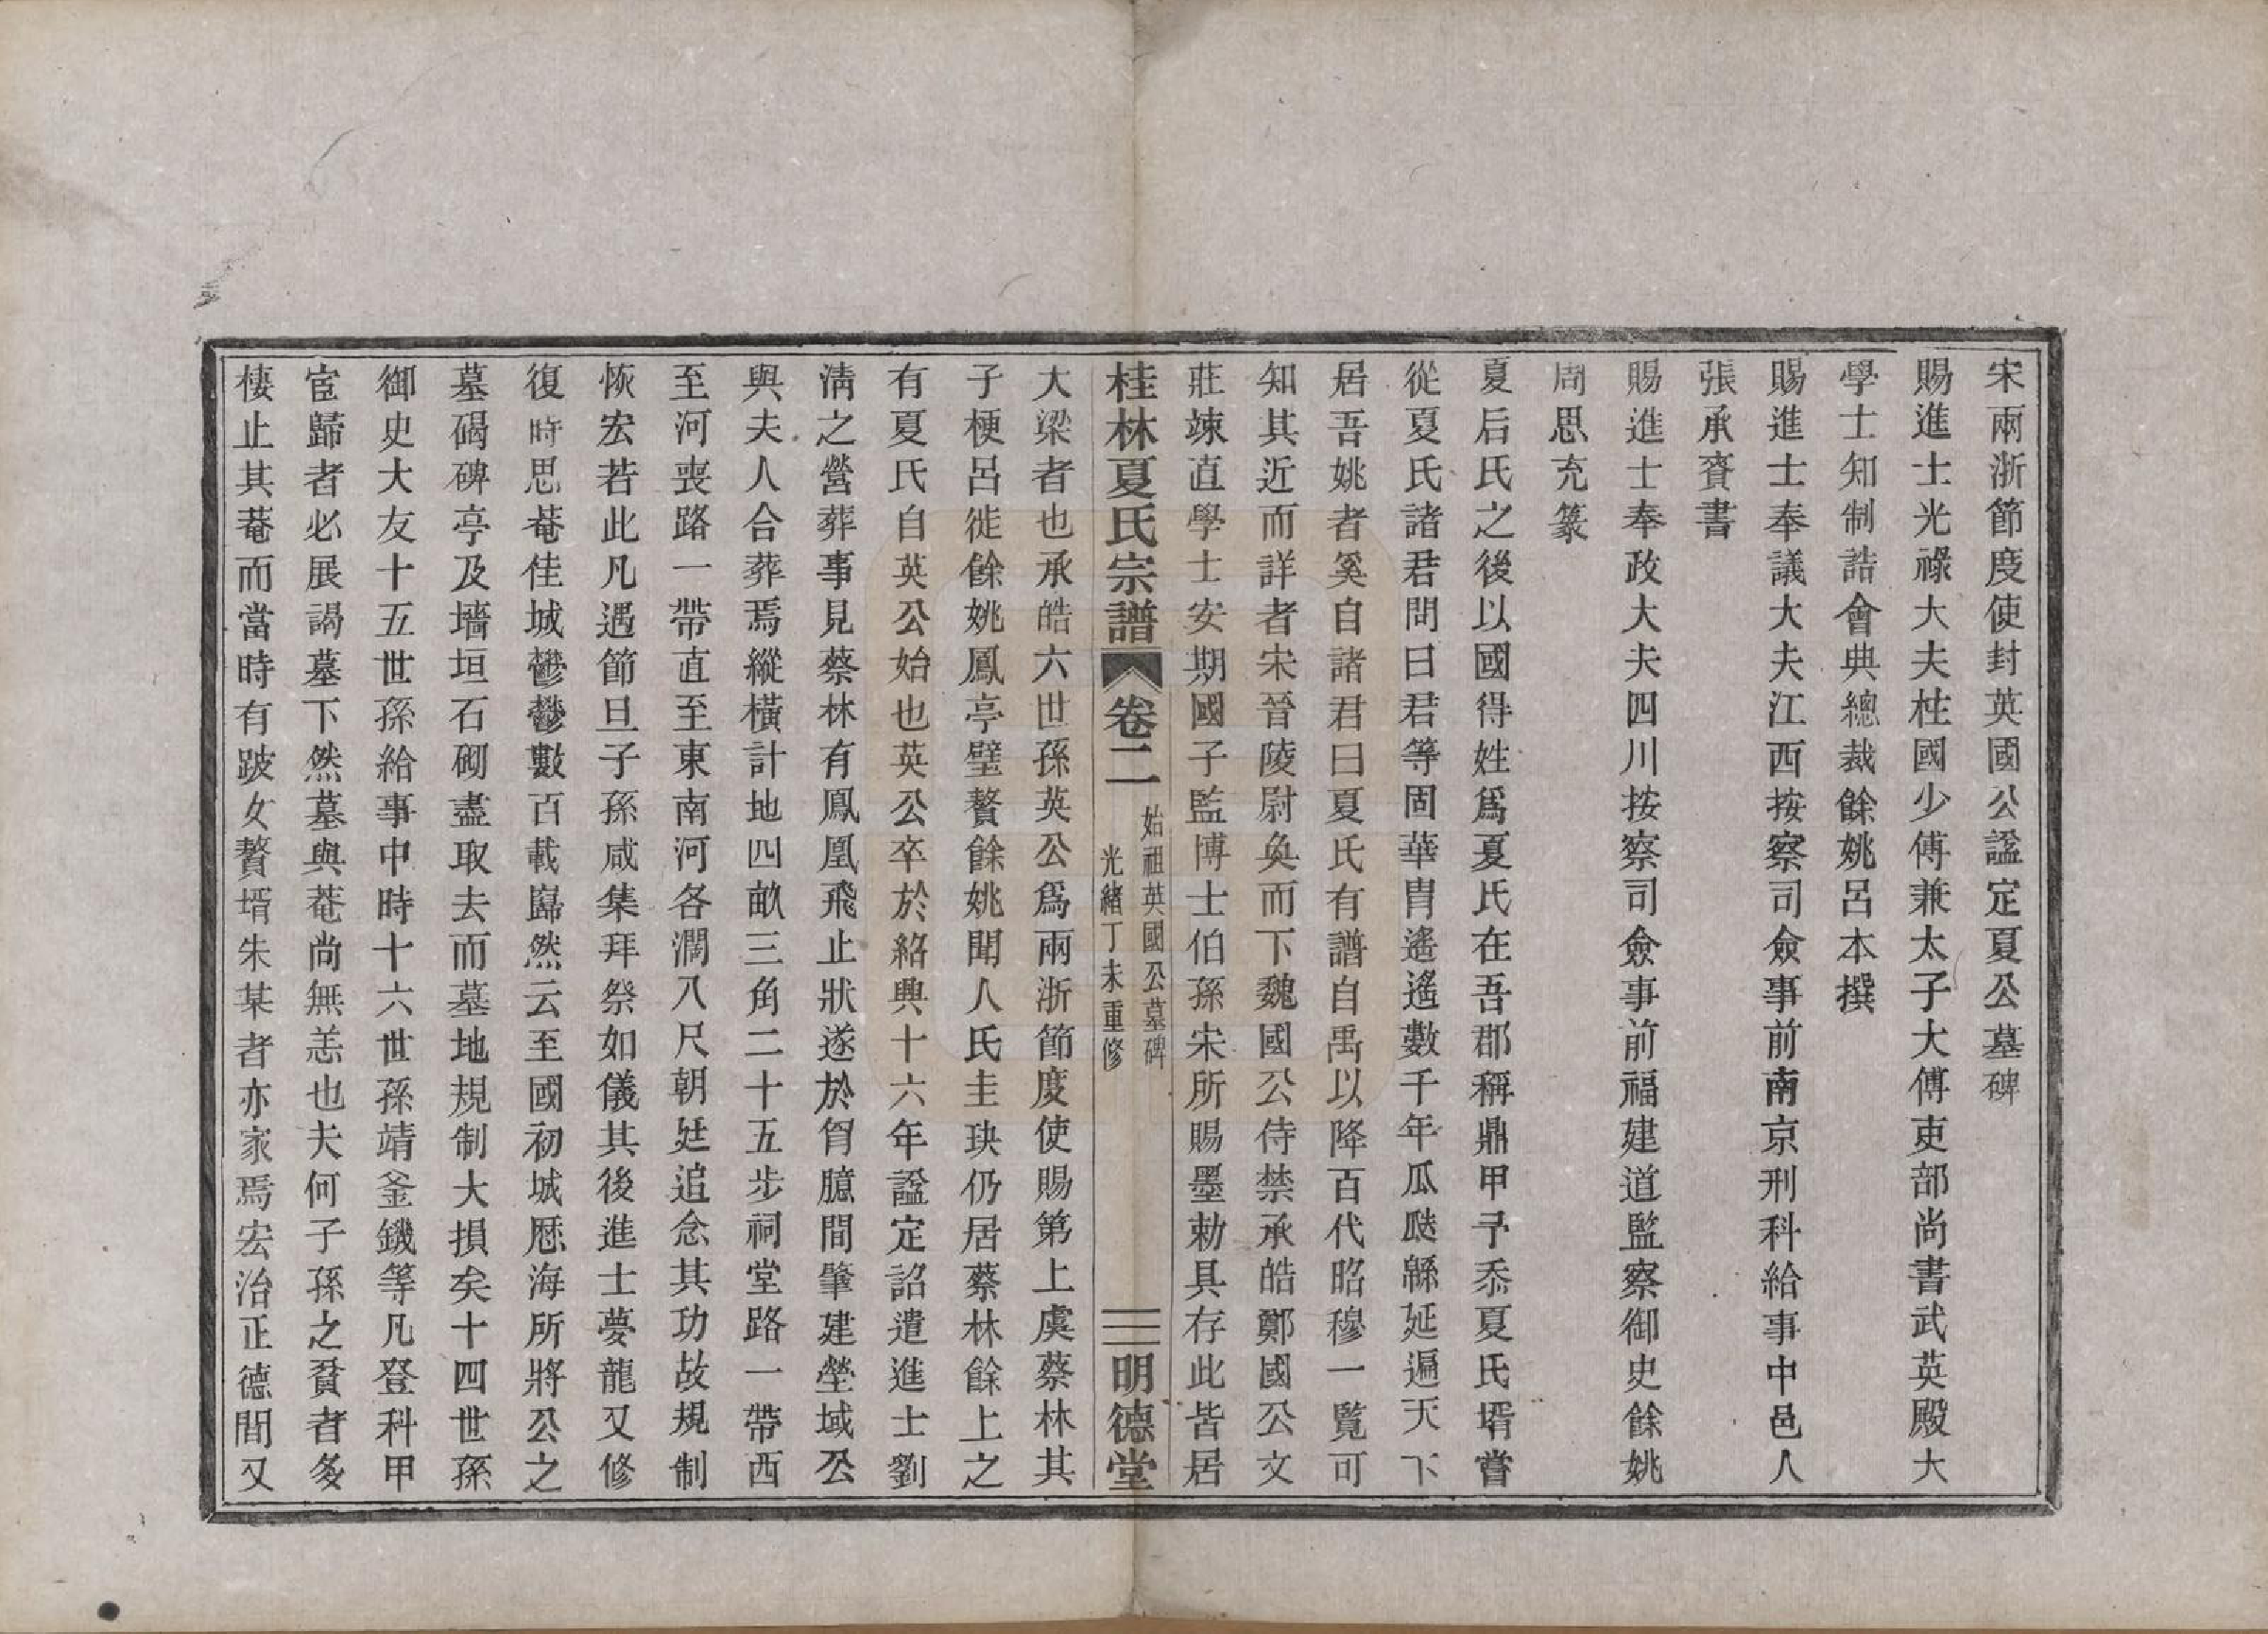 宋兩浙節度使封英國公諡定夏公墓碑
賜進士光祿大夫柱國少傅兼太子大傅吏部尚書武英殿大
學士知制誥會典總裁餘姚呂本撰
賜進士奉議大夫江西按察司僉事前南京刑科給事中邑人
張承賚書
賜進士奉政大夫四川按察司僉事前福建道監察御史餘姚
周思充篆
夏后氏之後以國得姓爲夏氏在吾郡稱鼎甲予忝夏氏壻嘗
從夏氏諸君問曰君等固華胄遙遙數千年瓜瓞緜延遍天下
居吾姚者奚自諸君曰夏氏有譜自禹以降百代昭穆一覽可
知其近而詳者宋晉陵尉奐而下魏國公侍禁承皓鄭國公文
莊竦直學士安期國子監博士伯孫宋所賜墨勅具存此皆居
桂林夏氏宗譜 卷二 始祖英國公墓碑 光緒丁未重修 三 明德堂
大梁者也承皓六世孫英公爲兩浙節度使賜第上虞蔡林其
子梗呂徙餘姚鳳亭璧贅餘姚聞人氏圭玦仍居蔡林餘上之
有夏氏自英公始也英公卒於紹興十六年諡定詔遣進士劉
淸之營葬事見蔡林有鳳凰飛止狀遂於胷臆間肇建塋域公
與夫人合葬焉縱橫計地四畝三角二十五步祠堂路一帶西
至河喪路一帶直至東南河各濶八尺朝廷追念其功故規制
恢宏若此凡遇節旦子孫咸集拜祭如儀其後進士夢龍又修
復時思菴佳城鬱鬱數百載巋然云至國初城臨海所將公之
墓碣碑亭及墻垣石砌盡取去而墓地規制大損矣十四世孫
御史大友十五世孫給事中時十六世孫靖釜鐖等凡登科甲
宦歸者必展謁墓下然墓與菴尚無恙也夫何子孫之貧者多
棲止其菴而當時有跛女贅壻朱某者亦家焉宏治正德間又